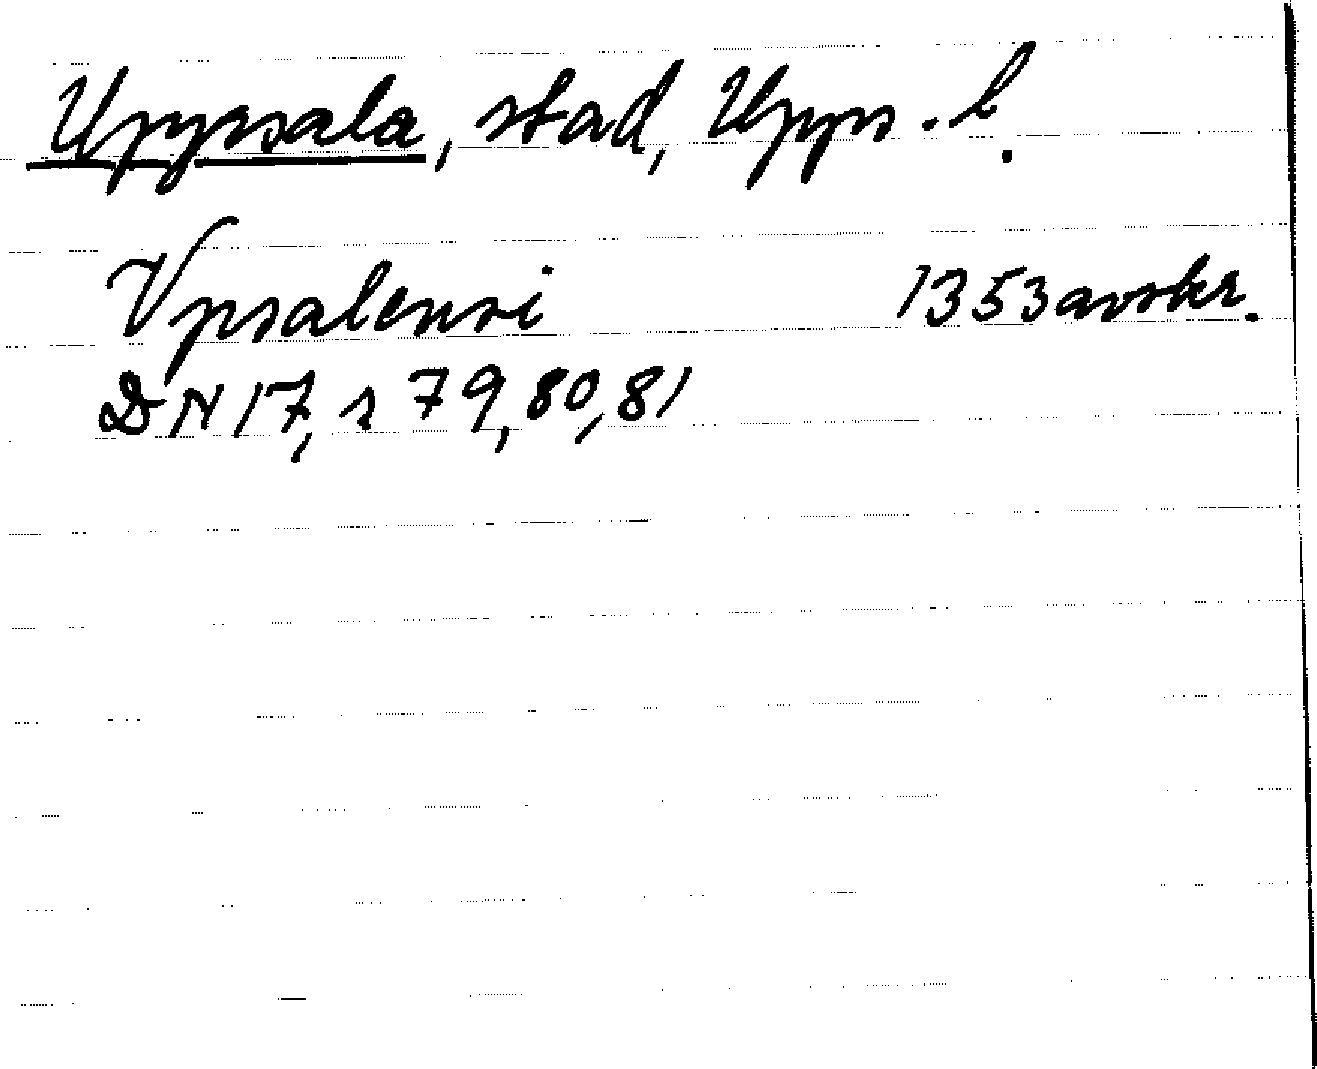 Uppsala, stad, Upps. l.
Vpsalensi 1353 avskr.
DN 17, s 79, 80, 81